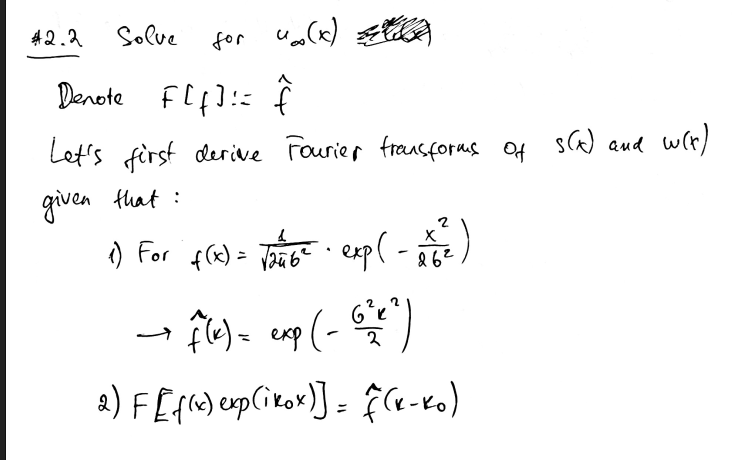 #2.2 Solve for u∞(x)
Denote F[f] := f̂
Let's first derive Fourier transforms of s(x) and w(x)
given that :
1) For f(x) = 1/√(2πσ²) · exp(- x²/2σ²)
→ f̂(k) = exp(- σ²k²/2)
2) F[f(x) exp(ik₀x)] = f̂(k-k₀)